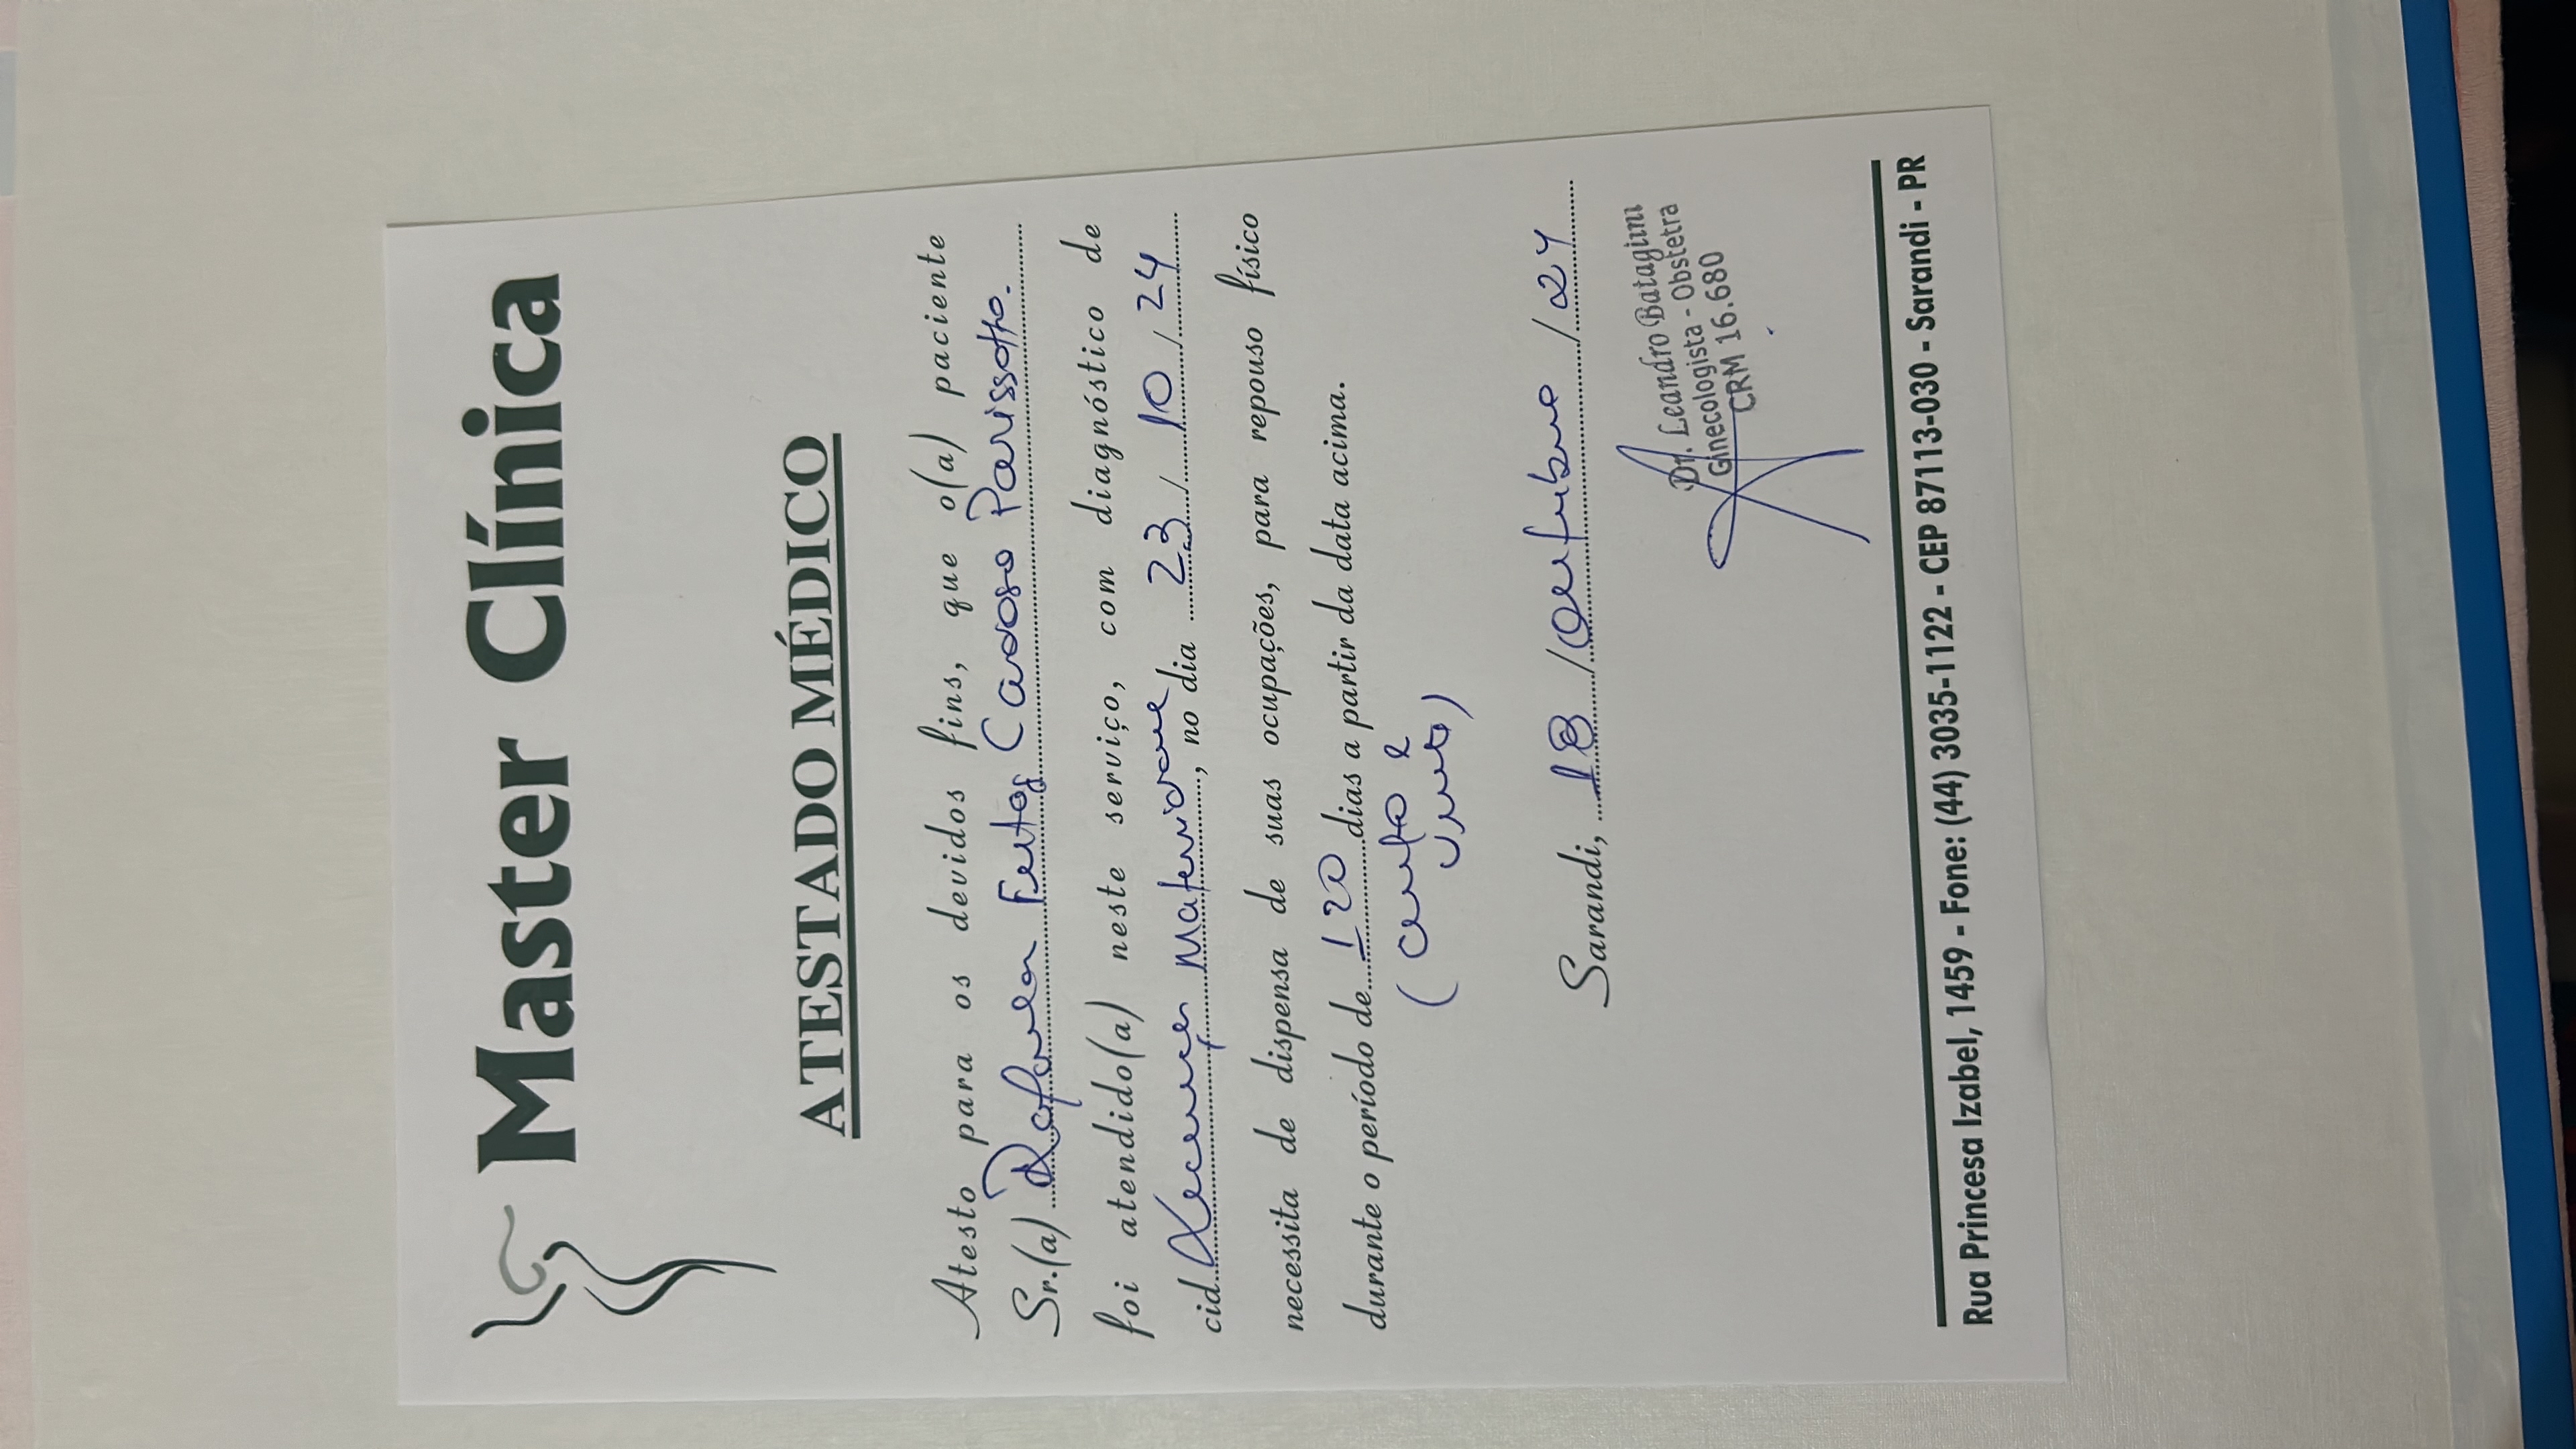 Master Clínica
ATESTADO MÉDICO
Atesto para os devidos fins, que o(a) paciente
Sr.(a) Rafaela Freitas Cardoso Parissotto.
foi atendido(a) neste serviço, com diagnóstico de
cid Licença Maternidade, no dia 23 / 10 / 24
necessita de dispensa de suas ocupações, para repouso físico
durante o período de 120 dias a partir da data acima.
( cento e
vinte )
Sarandi, 18 / Outubro / 24
Dr. Leandro Batagini
Ginecologista - Obstetra
CRM 16.680
Rua Princesa Izabel, 1459 - Fone: (44) 3035-1122 - CEP 87113-030 - Sarandi - PR